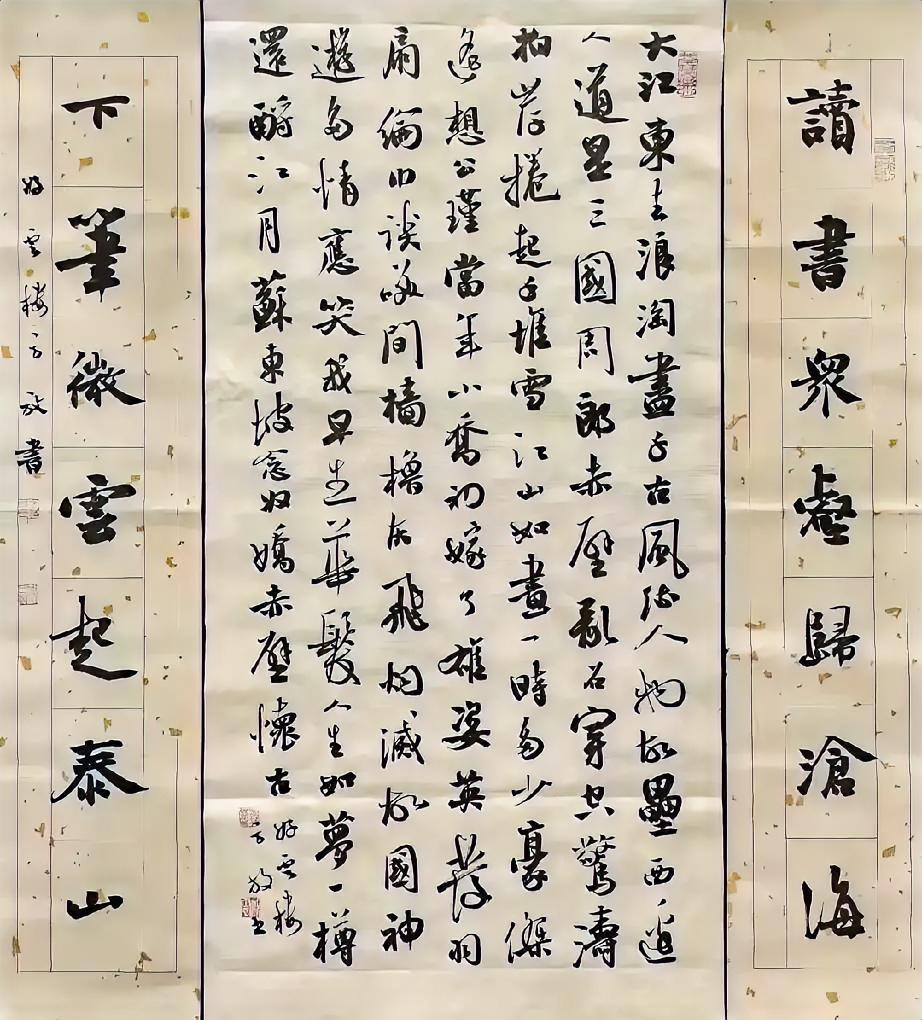 讀書眾壑歸滄海
大江東去浪淘盡千古風流人物故壘西邊
人道是三國周郎赤壁亂石穿空驚濤
拍岸捲起千堆雪江山如畫一時多少豪傑
遙想公瑾當年小喬初嫁了雄姿英發羽
扇綸巾談笑間檣櫓灰飛烟滅故國神
遊多情應笑我早生華髮人生如夢一樽
還酹江月蘇東坡念奴嬌赤壁懷古
好云樓
方放书
下筆微雲起泰山
好云樓方放書